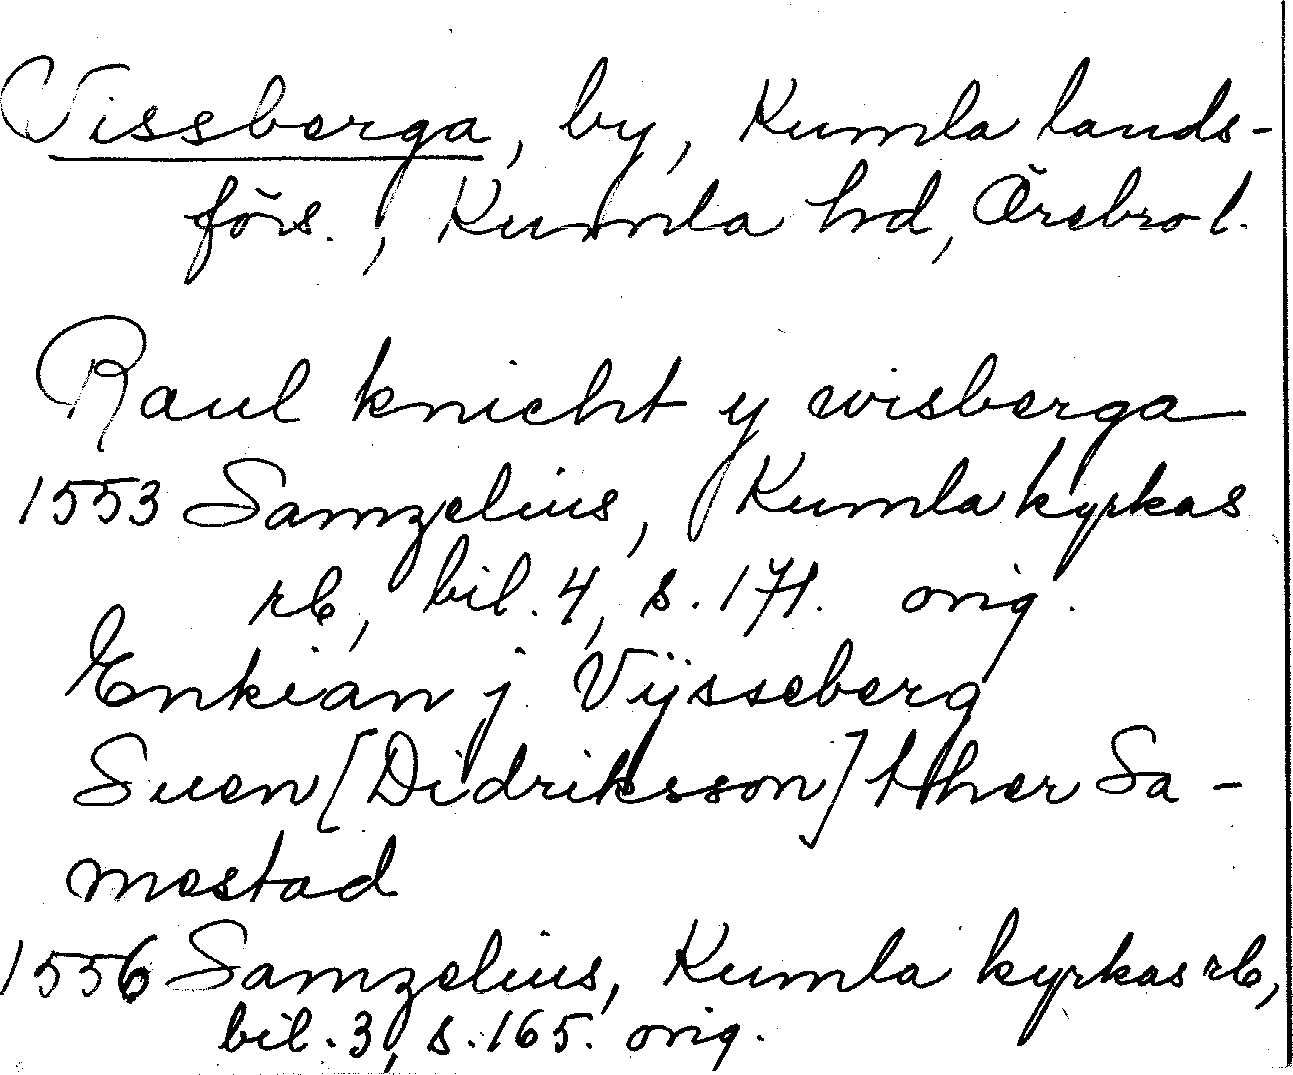 Vissberga, by, Kumla lands-
förs., Kumla hd, Örebro l.
Raul knicht y wisberga
1553 Samzelius, Kumla kyrkas
rb, bil. 4, s. 171. orig.
Enkian j Vijsseberg
Suen [Didriksson] ther Sa-
mestad
1556 Samzelius, Kumla kyrkas rb,
bil. 3, s. 165. orig.